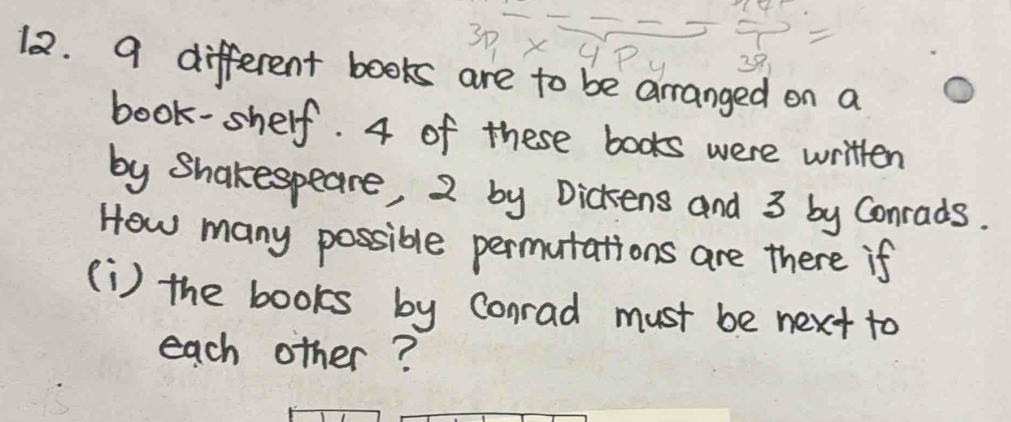 3P1 × 4P4 3P1 =
12. 9 different books are to be arranged on a
book-shelf. 4 of these books were written
by Shakespeare, 2 by Dickens and 3 by Conrads.
How many possible permutations are there if
(i) the books by Conrad must be next to
each other?